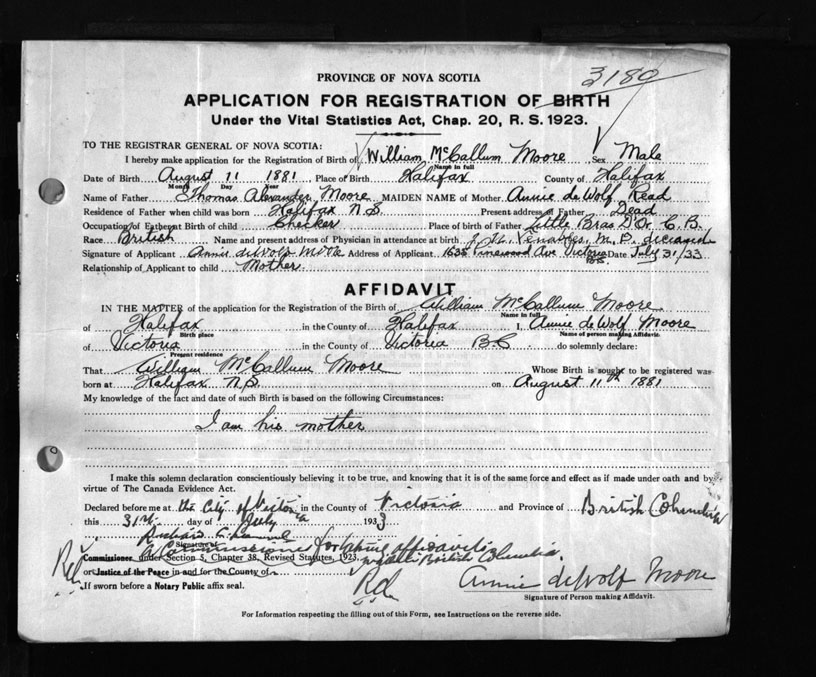 3180
PROVINCE OF NOVA SCOTIA
APPLICATION FOR REGISTRATION OF BIRTH
Under the Vital Statistics Act, Chap. 20, R. S. 1923.
TO THE REGISTRAR GENERAL OF NOVA SCOTIA:
I hereby make application for the Registration of Birth of William McCallum Moore, Sex Male
Name in full
Date of Birth August 11 1881 Place of Birth Halifax County of Halifax
Month Day Year
Name of Father Thomas Alexander Moore MAIDEN NAME of Mother Annie deWolf Read
Residence of Father when child was born Halifax N.S. Present address of Father Dead
Occupation of Father at Birth of child Checker Place of birth of Father Little Bras D'Or C.B.
Race British Name and present address of Physician in attendance at birth Venables, M.D. deceased
Signature of Applicant Annie deWolf Moore Address of Applicant 1635 Pinewood Ave Victoria B.C. Date July 31/33
Relationship of Applicant to child Mother
AFFIDAVIT
IN THE MATTER of the application for the Registration of the Birth of William McCallum Moore
Name in full
of Halifax in the County of Halifax I, Annie deWolf Moore
Birth place Name of person making Affidavit.
of Victoria in the County of Victoria B.C. do solemnly declare:
Present residence
That William McCallum Moore Whose Birth is sought to be registered was
born at Halifax N.S. on August 11th 1881
My knowledge of the fact and date of such Birth is based on the following Circumstances:
I am his mother
I make this solemn declaration conscientiously believing it to be true, and knowing that it is of the same force and effect as if made under oath and by
virtue of The Canada Evidence Act.
Declared before me at the City of Victoria in the County of Victoria and Province of British Columbia
this 31st day of July 1933
Signature of
A Commissioner for taking affidavits
within British Columbia.
Commissioner under Section 5, Chapter 38, Revised Statutes, 1923
or Justice of the Peace in and for the County of
If sworn before a Notary Public affix seal.
Annie deWolf Moore
Signature of Person making Affidavit.
For Information respecting the filling out of this Form, see Instructions on the reverse side.